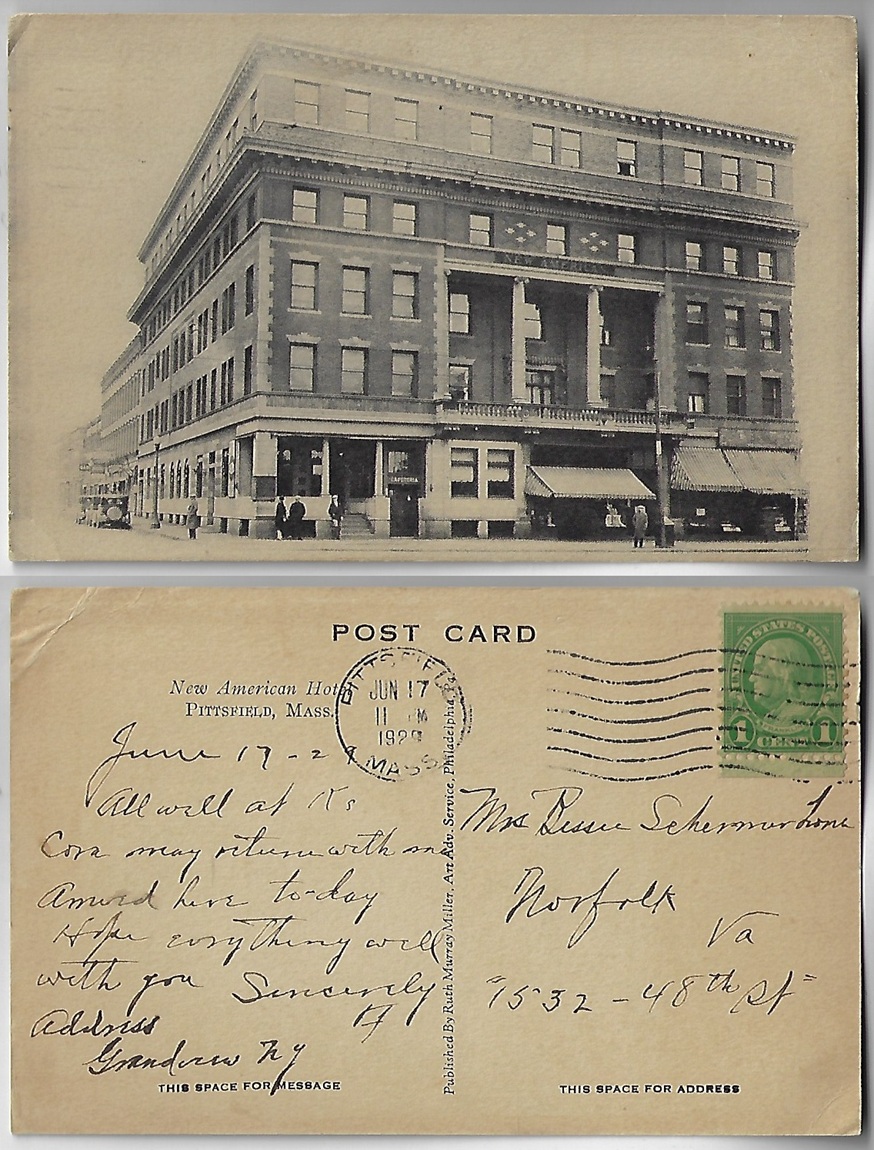 NEW AMERICAN
CAFETERIA
POST CARD
New American Hot
PITTSFIELD, MASS.
PITTSFIELD
JUN 17
11 M
1929
MASS.
UNITED STATES POSTAGE
1 CENT 1
June 17 - 29
All well at K's
Cora may return with me
Arrived here to-day
Hope everything well
with you Sincerely
Address
Grandview NY
THIS SPACE FOR MESSAGE
Published By Ruth Murray Miller, Art Adv. Service, Philadelphia,
Mrs Bessie Schermerhorne
Norfolk
Va
"1532 - 48th St"
THIS SPACE FOR ADDRESS